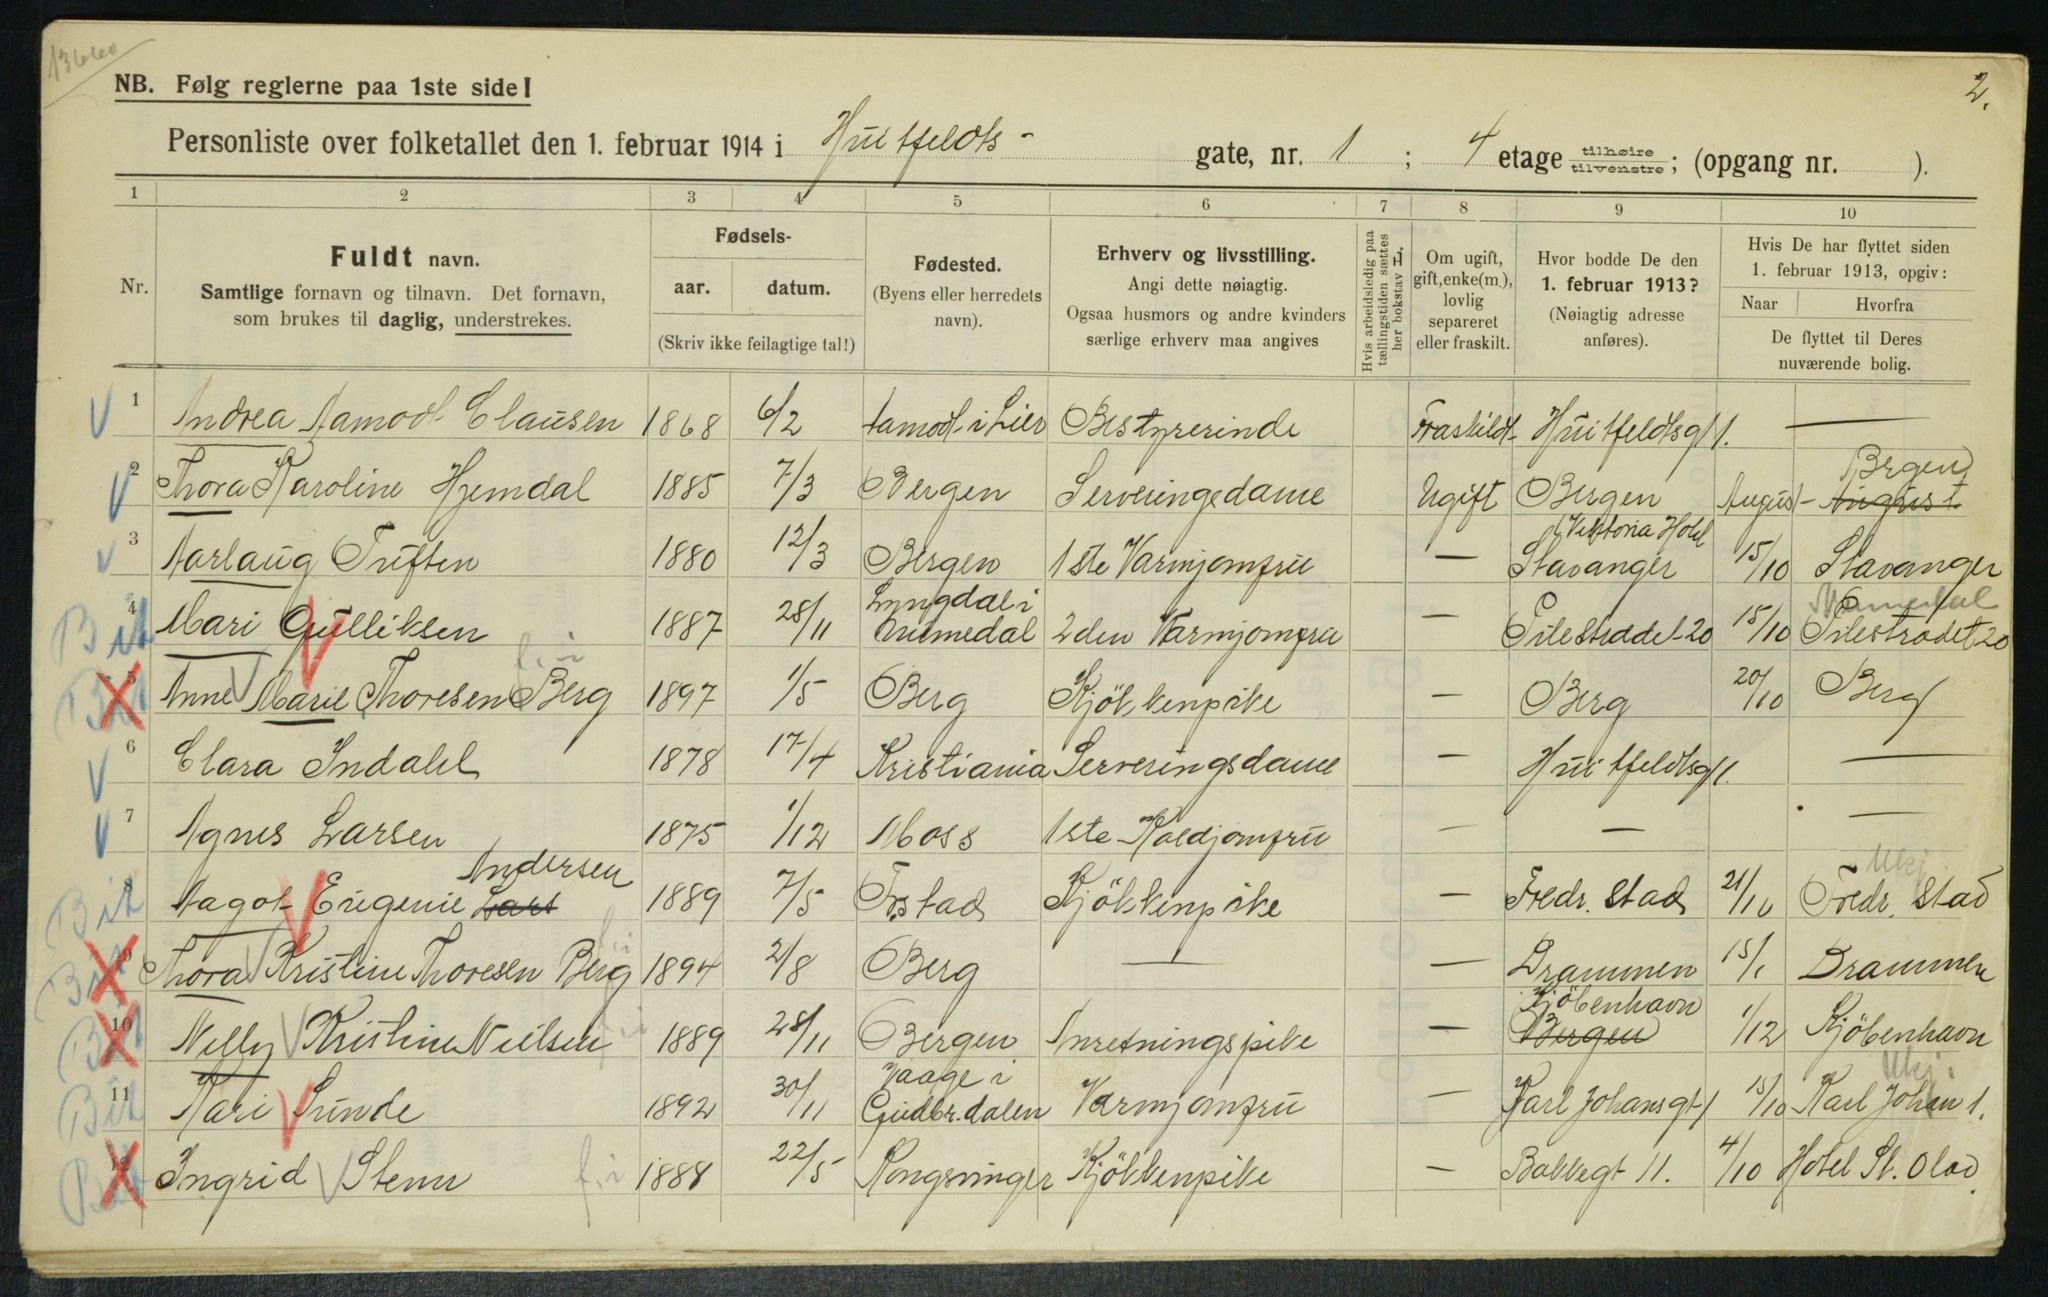 NB. Følg reglerne paa 1ste side!
2.
Personliste over folketallet den 1. februar 1914 i Huitfeldts- gate, nr. 1; 4 etage tilhøire tilvenstre; (opgang nr. ).
1 2 3 4 5 6 7 8 9 10
Nr.
Fuldt navn.
Samtlige fornavn og tilnavn. Det fornavn,
som brukes til daglig, understrekes.
Fødsels-
aar. datum.
(Skriv ikke feilagtige tal!)
Fødested.
(Byens eller herredets
navn).
Erhverv og livsstilling.
Angi dette nøiagtig.
Ogsaa husmors og andre kvinders
særlige erhverv maa angives
Hvis arbeidsledig paa
tællingstiden sættes
her bokstav L.
Om ugift,
gift, enke(m.),
lovlig
separeret
eller fraskilt.
Hvor bodde De den
1. februar 1913?
(Nøiagtig adresse
anføres).
Hvis De har flyttet siden
1. februar 1913, opgiv:
Naar Hvorfra
De flyttet til Deres
nuværende bolig.
1 Andrea Aamodt Clausen 1868 6/2 Aamodt i Lier Bestyrerinde Fraskildt Huitfeldtsgt 1. —
Bergen
2 Thora Karoline Hjemdal 1885 7/3 Bergen Serveringsdame Ugift Bergen August - August
Viktoria Hotel
3 Aarlaug Tuften 1880 12/3 Bergen 1ste Varmjomfru — Stavanger 15/10 Stavanger
Numedal
4 Mari Gulliksen 1887 28/11 Lyngdal i Numedal 2den Varmjomfru — Pilestrædet 20 15/10 Pilestrædet 20
Bit
f.i
5 Anne Marie Thoresen Berg 1897 1/5 Berg Kjökkenpike — Berg 20/10 Berg
Bit
6 Clara Indahl 1878 17/4 Kristiania Serveringsdame — Huitfeldtsgt 1. —
7 Agnes Larsen 1875 1/12 Moss 1ste Koldjomfru — — —
Andersen
Ukj.
8 Aagot Eugenie Lars 1889 7/5 Fr.stad Kjökkenpike — Fredr. stad 21/10 Fredr. stad
Bit
f.i
9 Thora Kristine Thoresen Berg 1894 2/8 Berg — — Drammen 15/1 Drammen
Bit
Kjöbenhavn
10 Nelly Kristine Nielsen 1889 28/11 Bergen Anretningspike — Bergen 1/12 Kjöbenhavn
Bit
f.i
Ukj.
11 Kari Sunde 1892 30/11 Vaage i Gudbr.dalen Varmjomfru — Karl Johansgt 1 15/10 Karl Johan 1.
Bit
12 Ingrid Stenn f.i 1888 22/5 Kongsvinger Kjökkenpike — Bakkegt 11. 4/10 Hotel St. Olav.
Bit